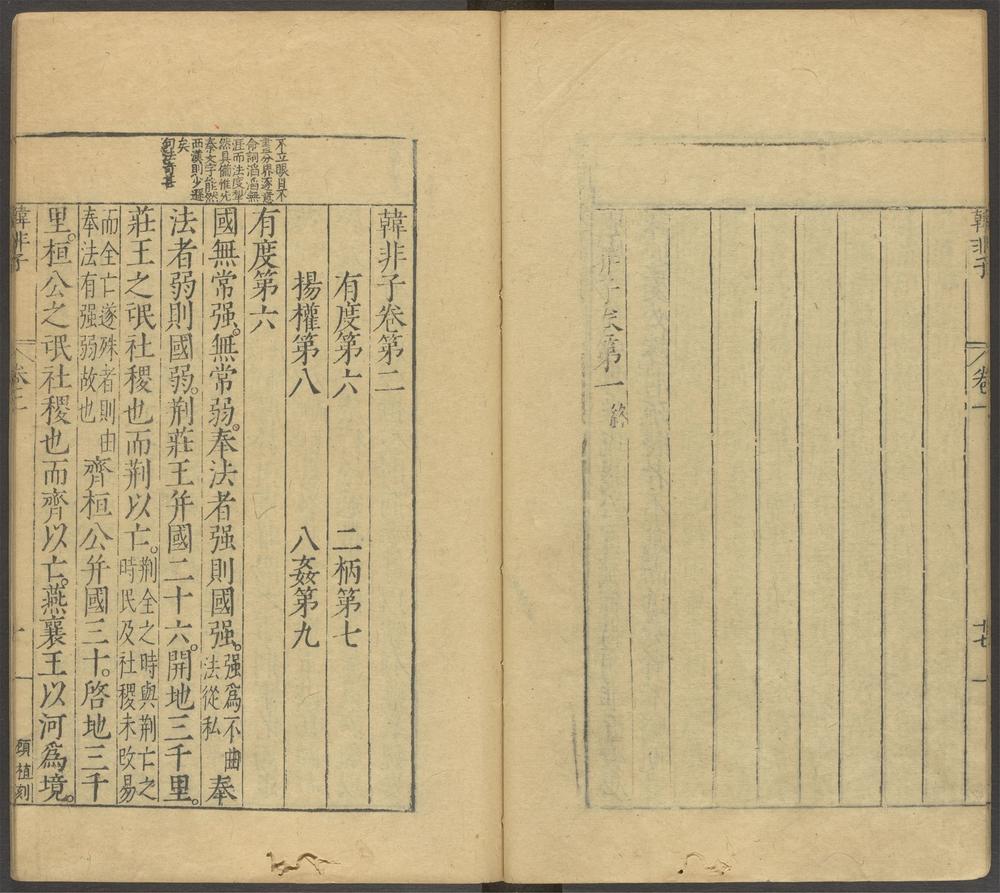 韓非子 卷一 十七
韓非子卷第一 終
不立眼目不
畫分界逐意
命詞滔滔無
涯而法度犂
然具備惟先
秦文字能然
西漢則少遜
矣
句法奇甚
韓非子卷第二
有度第六 二柄第七
揚權第八 八姦第九
有度第六
國無常强。無常弱。奉法者强則國强。强爲不曲法從私奉
法者弱則國弱。荆莊王幷國二十六。開地三千里。
莊王之氓社稷也而荆以亡。荆全之時與荆亡之時民及社稷未改易
而全亡遂殊者則由奉法有强弱故也齊桓公幷國三十。啓地三千
里。桓公之氓社稷也而齊以亡。燕襄王以河爲境。
韓非子 卷二 一 顧植刻